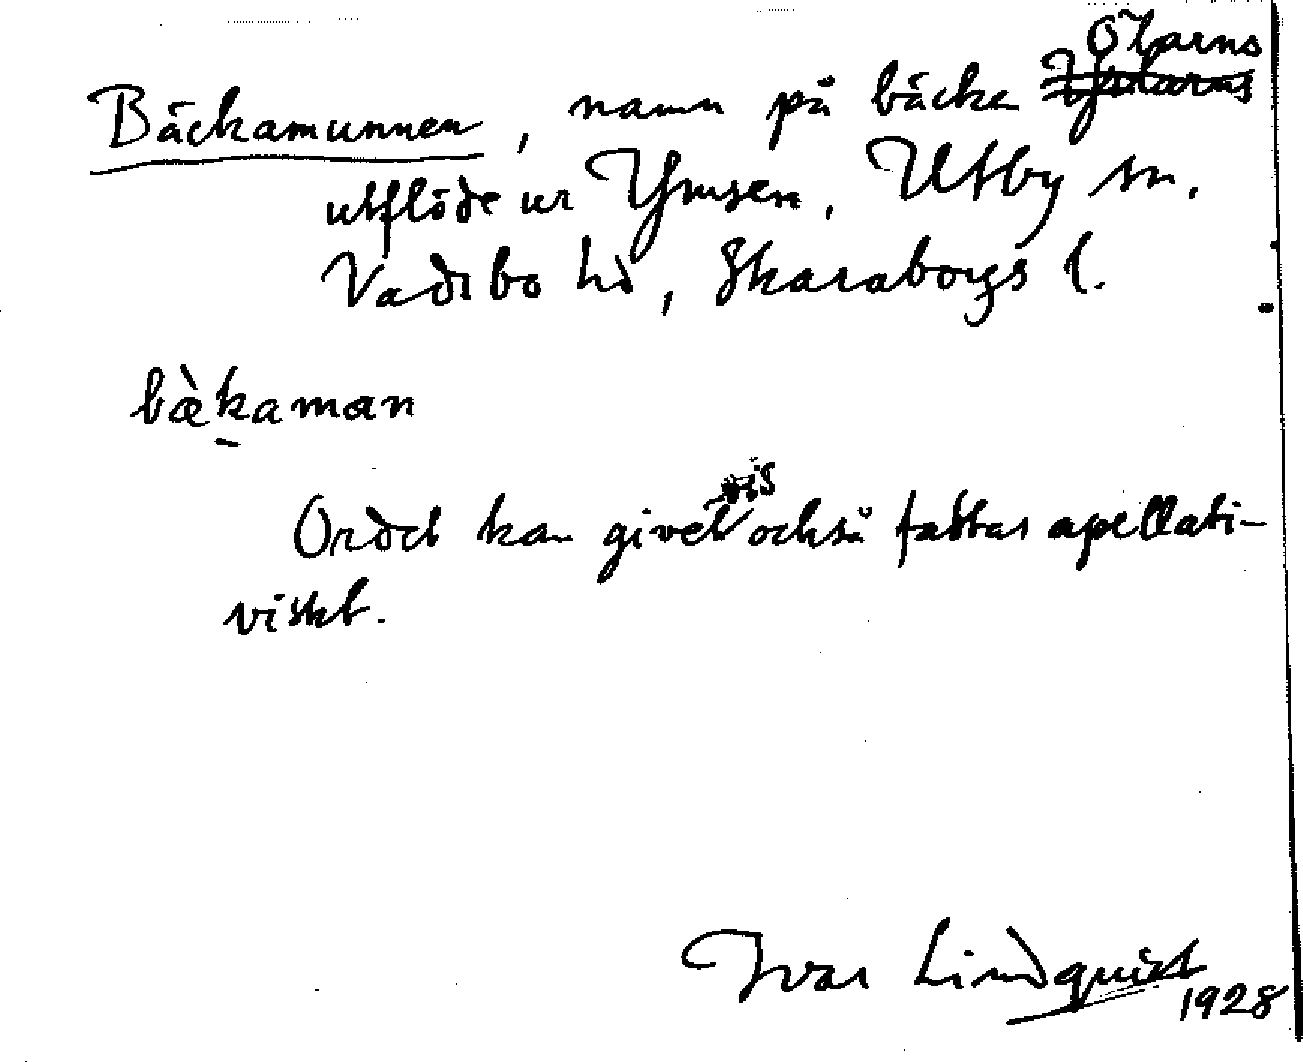 Bäckamunnen, namn på bäcken Ölarns
utflöde ur Ymsen, Utby sn.
Vadsbo hd, Skaraborgs l.
bæ̀kaman
Ordet kan givetvis också fattas apellati-
viskt.
Ivar Lindquist
1928